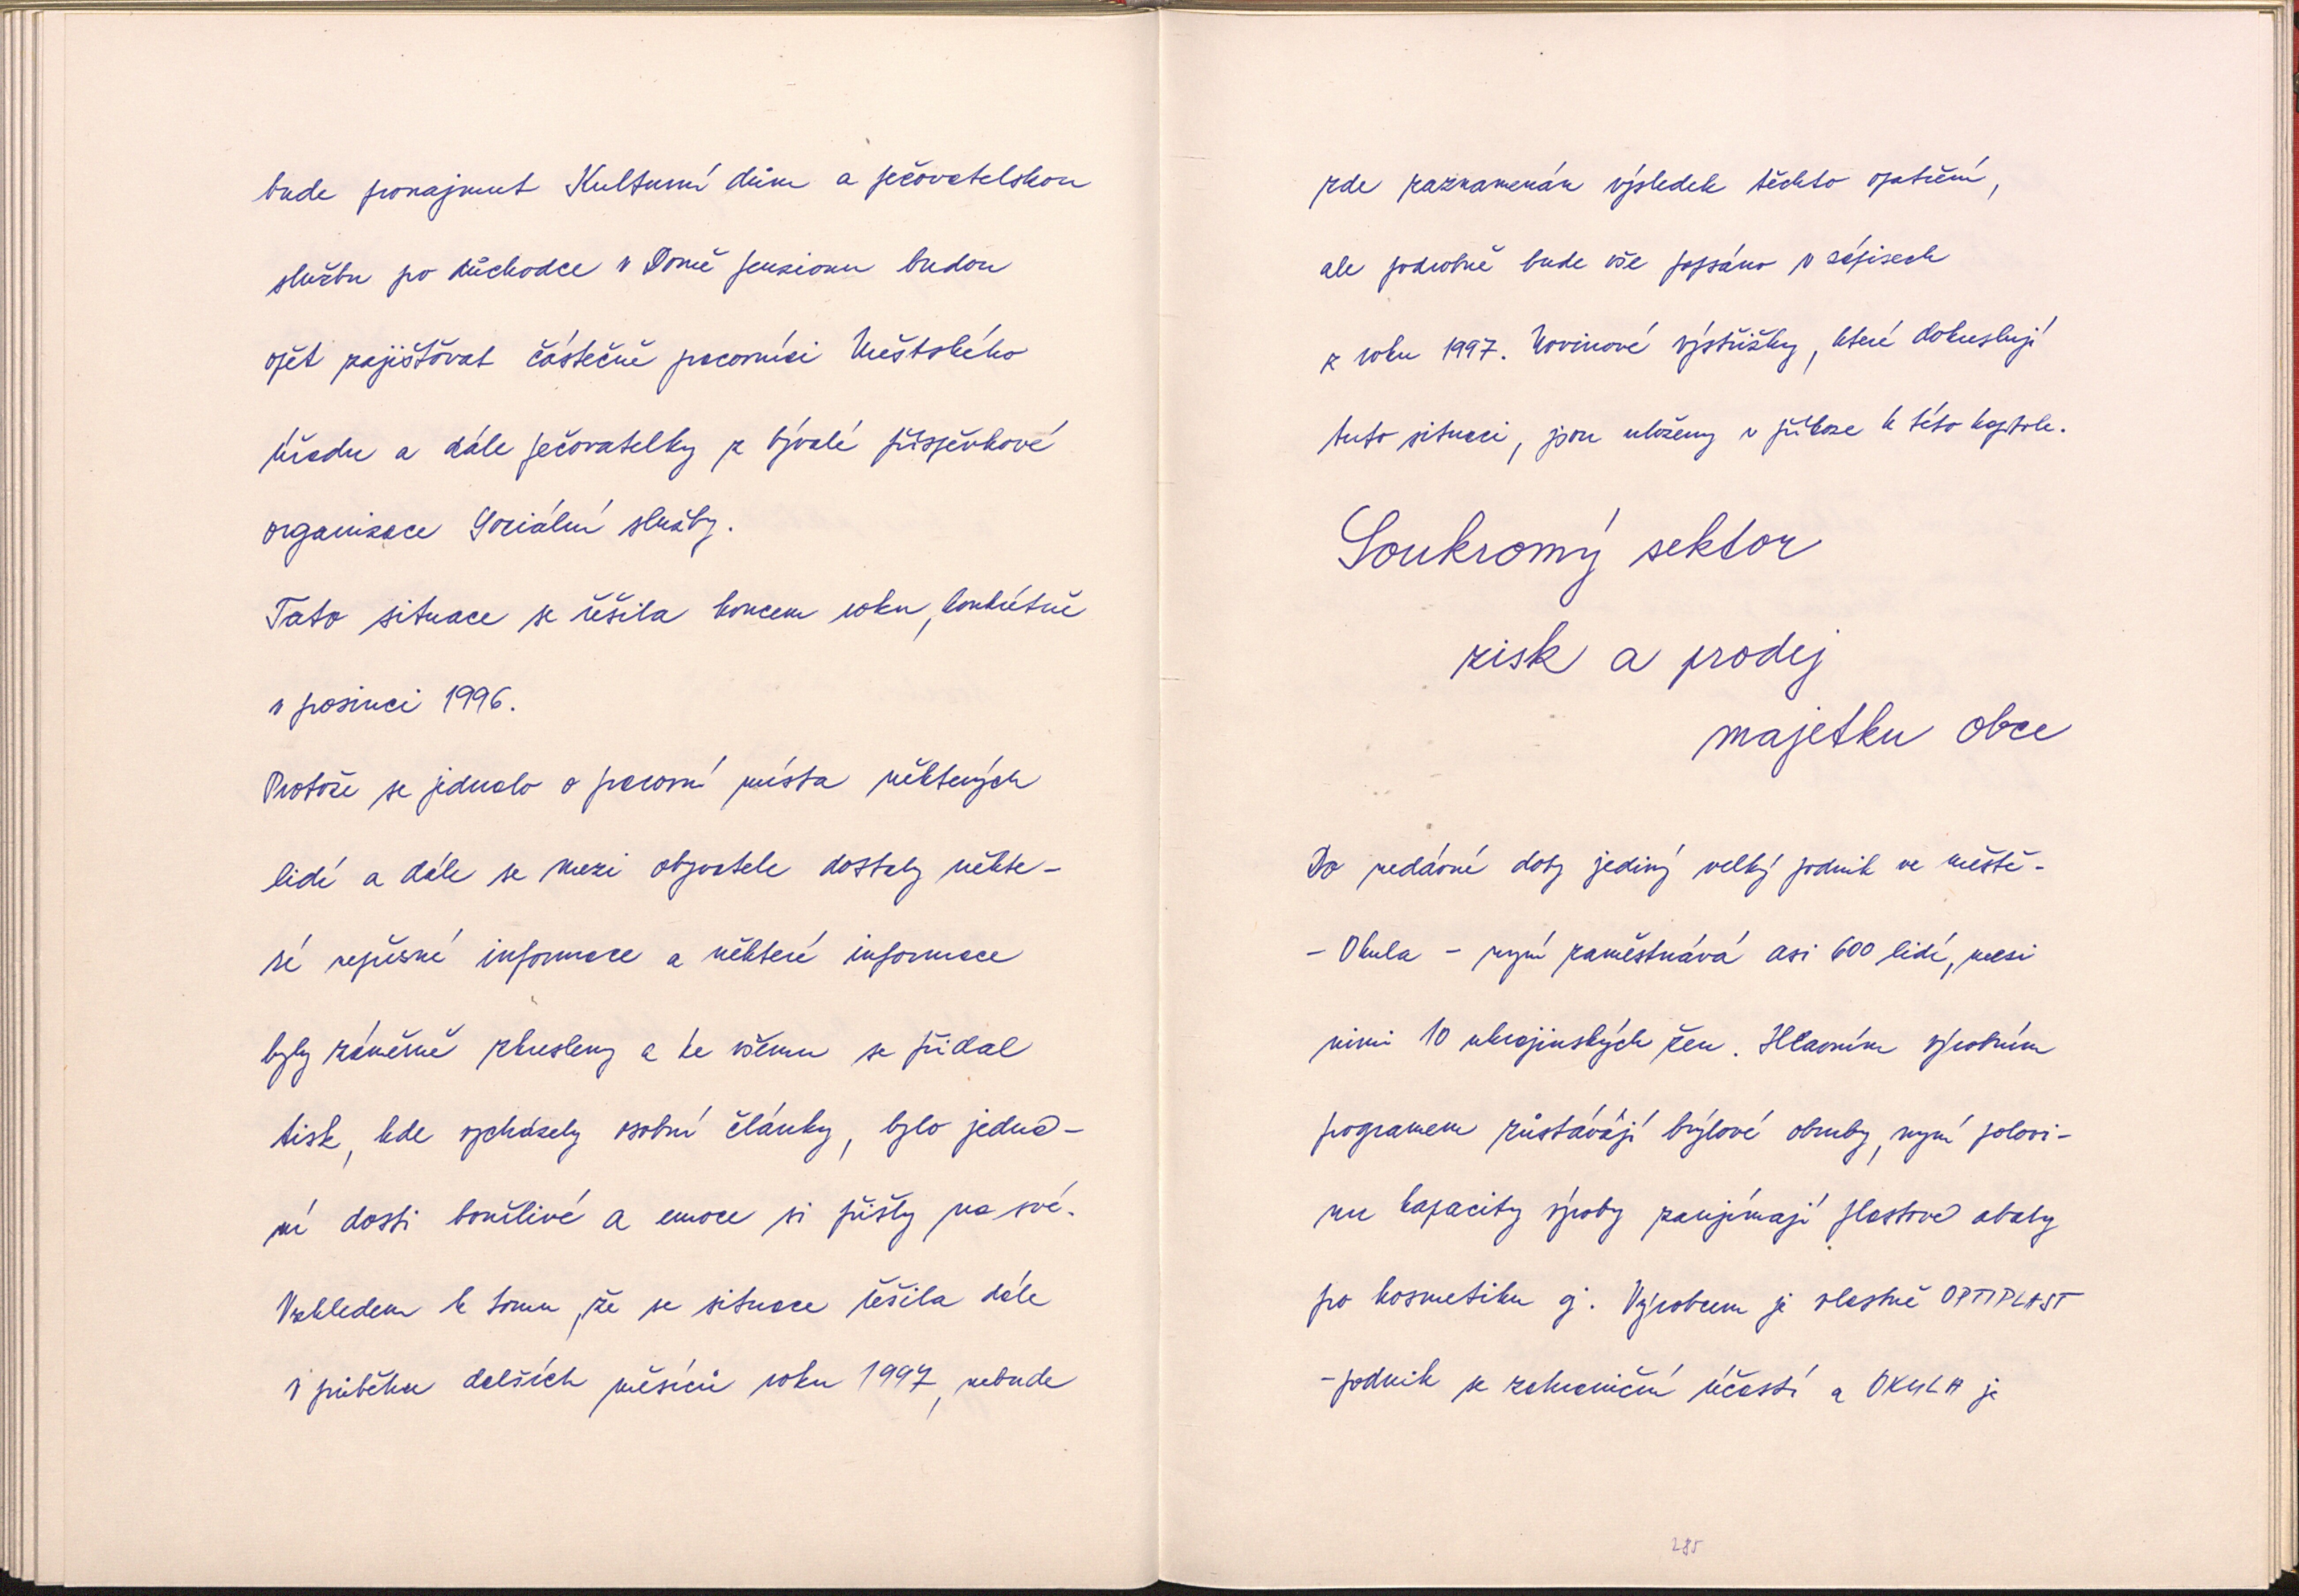 bude pronajmut Kulturní dům a pečovatelskou
službu po důchodce v Domě pensionu budou
opět zajišťovat částečně pracovníci Městského
úřadu a dále pečovatelky z bývalé příspěvkové
organizace Sociální služby.
Tato situace se řešila koncem roku, konkrétně
v prosinci 1996.
Protože se jednalo o pracovní místa některých
lidí a dále se mezi obyvatele dostaly někte-
ré nepřesné informace a některé informace
byly záměrně zkresleny a ke všemu se přidal
tisk, kde vycházely osobní články, bylo jedná-
ní dosti bouřlivé a emoce si přišly na své.
Vzhledem k tomu, že se situace řešila dále
v průběhu dalších měsíců roku 1997, nebude
zde zaznamenán výsledek těchto opatření,
ale podrobně bude vše popsáno v zápisech
z roku 1997. Novinové výstřižky, které dokreslují
tuto situaci, jsou uloženy v příloze k této kapitole.
Soukromý sektor
zisk a prodej
majetku obce
Do nedávné doby jediný velký podnik ve městě-
- Okula - nyní zaměstnává asi 600 lidí, mezi
nimi 10 ukrajinských žen. Hlavním výrobním
programem zůstávájí brýlové obruby, nyní polovi-
nu kapacity výroby zaujímají plastové obaly
pro kosmetiku aj. Výrobcem je vlastně OPTIPLAST
-podnik se zahraniční účastí a OKULA je
285